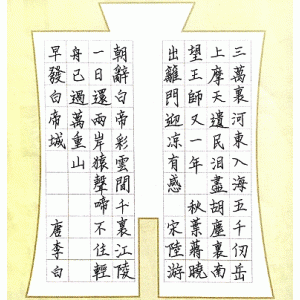 三萬裏河東入海五千仞岳
上摩天遺民泪盡胡塵裏南
望王師又一年 秋葉蔣曉
出籬門迎凉有感 宋陸游
朝辭白帝彩雲間千裏江陵
一日還兩岸猿聲啼不住輕
舟已過萬重山
早發白帝城 唐李白